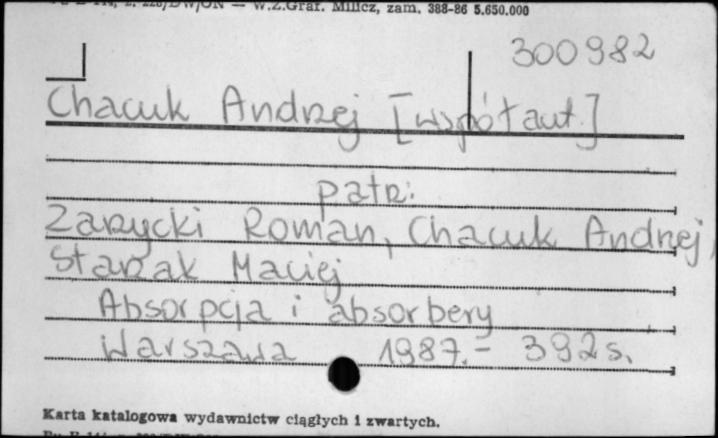 W.Z.Graf. Milicz, zam. 388-86 5.650.000
300982
Chacuk Andrzej [współaut.]
patrz:
Zarzycki Roman, Chacuk Andrzej,
Starzak Maciej
Absorpcja i absorbery
Warszawa 1987.- 392 s.
Karta katalogowa wydawnictw ciągłych i zwartych.